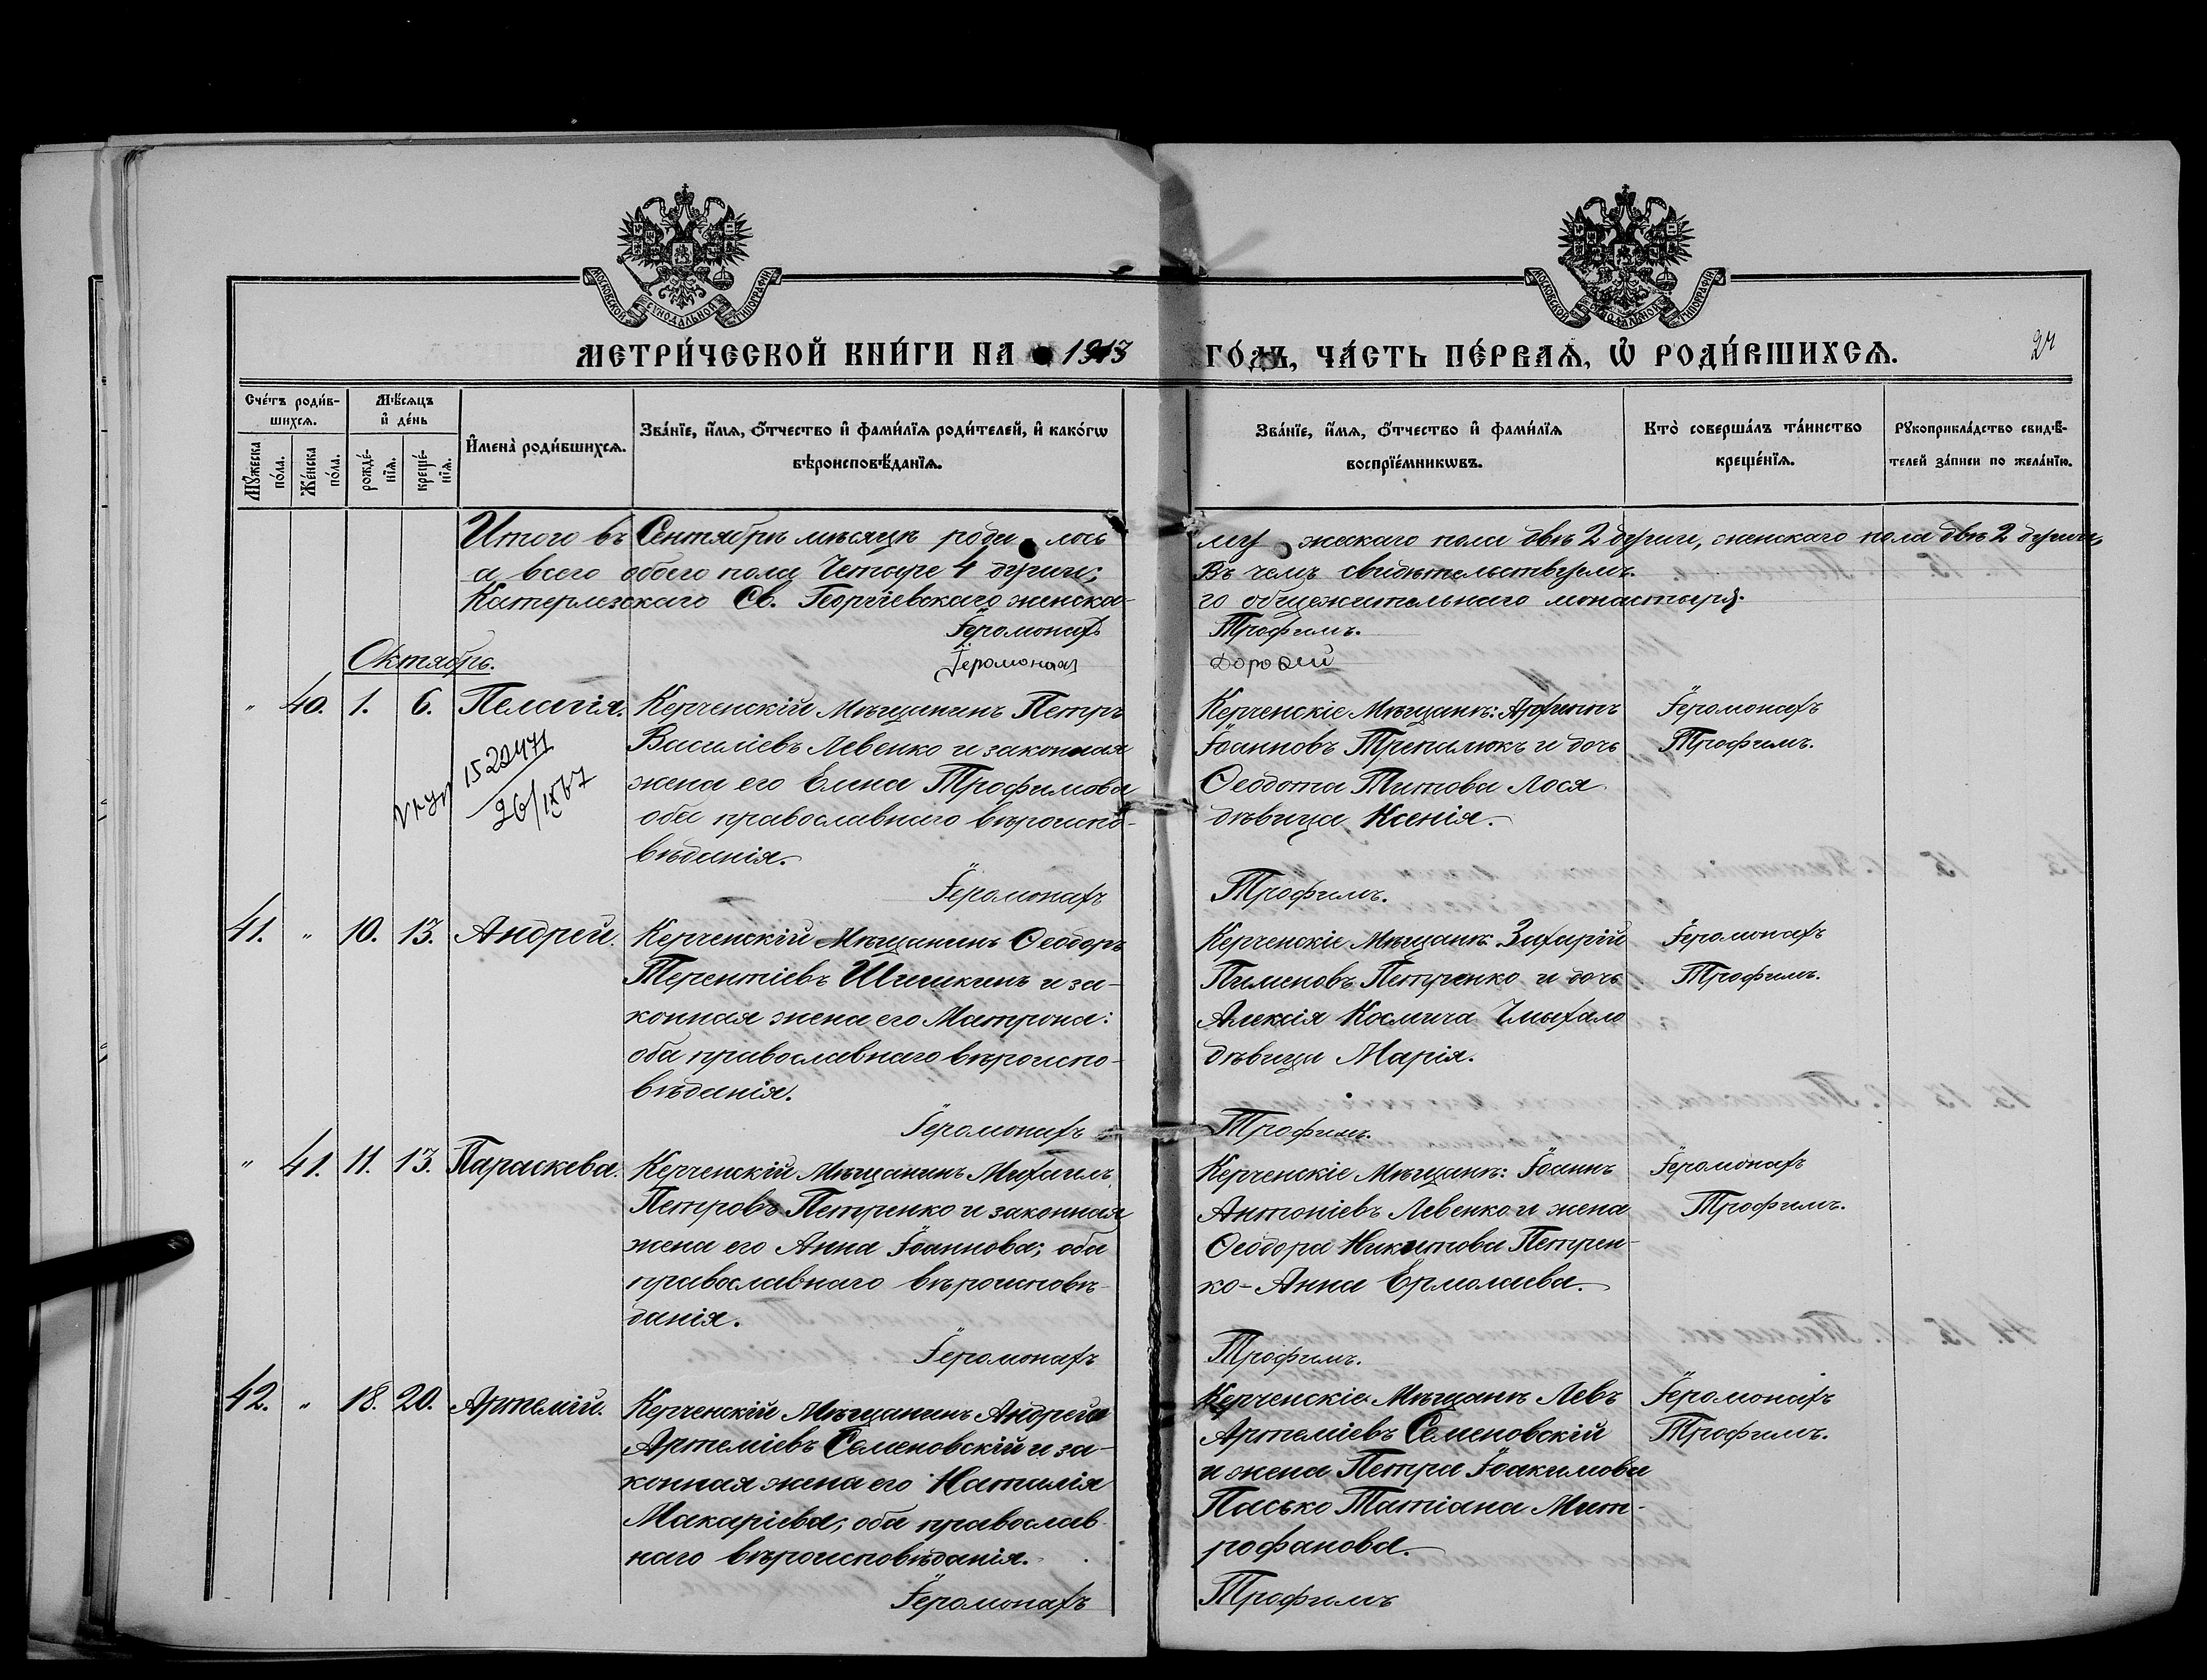 МОСКОВСКОЙ СѴНОДАЛЬНОЙ ТИПОГРАФІИ
МОСКОВСКОЙ СѴНОДАЛЬНОЙ ТИПОГРАФІИ
МЕТРИ́ЧЕСКОЙ КНИ́ГИ НА 1913 ГО́ДЪ, ЧА́СТЬ ПЕ́РВАѦ, Ѡ҆ РОДИ́ВШИХСѦ.
Сче́тъ роди́в-
шихсѧ.
Мꙋжеска по́ла.
Же́нска по́ла.
Мѣ́сѧцъ
и҆ де́нь
рожде́-
нїѧ.
креще́-
нїѧ.
И҆мена̀ роди́вшихсѧ.
Зва́нїе, и҆́мѧ, ѻ҆́тчество и҆ фами́лїѧ роди́телей, и҆ како́гѡ
вѣроисповѣ́данїѧ.
Зва́нїе, и҆́мѧ, ѻ҆́тчество и҆ фами́лїѧ
воспрїе́мникѡвъ.
Кто̀ соверша́лъ та́инство
креще́нїѧ.
Рꙋкоприкла́дство свидѣ́-
телей за́писи по жела́нїю.
Итого въ Сентябрѣ мѣсяцѣ роди лось му жескаго пола двѣ 2 души, женскаго пола двѣ 2 души,
а всего обоего пола Четыре 4 души; Въ чемъ свидѣтельствуемъ.
Катерлезскаго Св. Георгіевскаго женска-го общежительнаго монастыря.
Іеромонахъ Трофимъ.
Іеромонах Дорофей
Октябрь.
" 40. 1. 6. Пелагія.
Керченскій Мѣщанинъ Петръ
Василіевъ Левенко и законная
жена его Елена Трофимова
оба православнаго вѣроиспо-
вѣданія.
Керченскіе Мѣщанѣ:
Іоанновъ Трепалюкъ и дочь
Ѳеодота Титова Лося
дѣвица Ксенія.
Іеромонахъ
Трофимъ.
1522471
26/IX67
Іеромонахъ Трофимъ.
41. " 10. 13. Андрей.
Керченскій Мѣщанинъ Ѳеодоръ
Терентіевъ Шишкинъ и за-
конная жена его Матрона:
оба православнаго вѣроиспо-
вѣданія.
Керченскіе Мѣщанѣ: Захарій
Пименовъ Петренко и дочь
Алексія Космича Чмыхало
дѣвица Марія.
Іеромонахъ
Трофимъ.
Іеромонахъ Трофимъ.
" 41. 11. 13. Параскева.
Керченскій Мѣщанинъ Михаилъ
Петровъ Петренко и законная
жена его Анна Іоаннова; оба
православнаго вѣроисповѣ-
данія.
Керченскіе Мѣщанѣ: Іоаннъ
Антоніевъ Левенко и жена
Ѳеодора Никитова Петрен-
ко - Анна Ермолаева.
Іеромонахъ
Трофимъ.
Іеромонахъ Трофимъ.
42. " 18. 20. Артемій.
Керченскій Мѣщанинъ Андрей
Артеміевъ Семеновскій и за-
конная жена его Наталія
Макаріева; оба православ
наго вѣроисповѣданія.
Керченскіе Мѣщанѣ Левъ
Артеміевъ Семеновскій
и жена Петра Іоакимова
Пасько Татіана Мит-
рофанова.
Іеромонахъ
Трофимъ.
Іеромонахъ Трофимъ